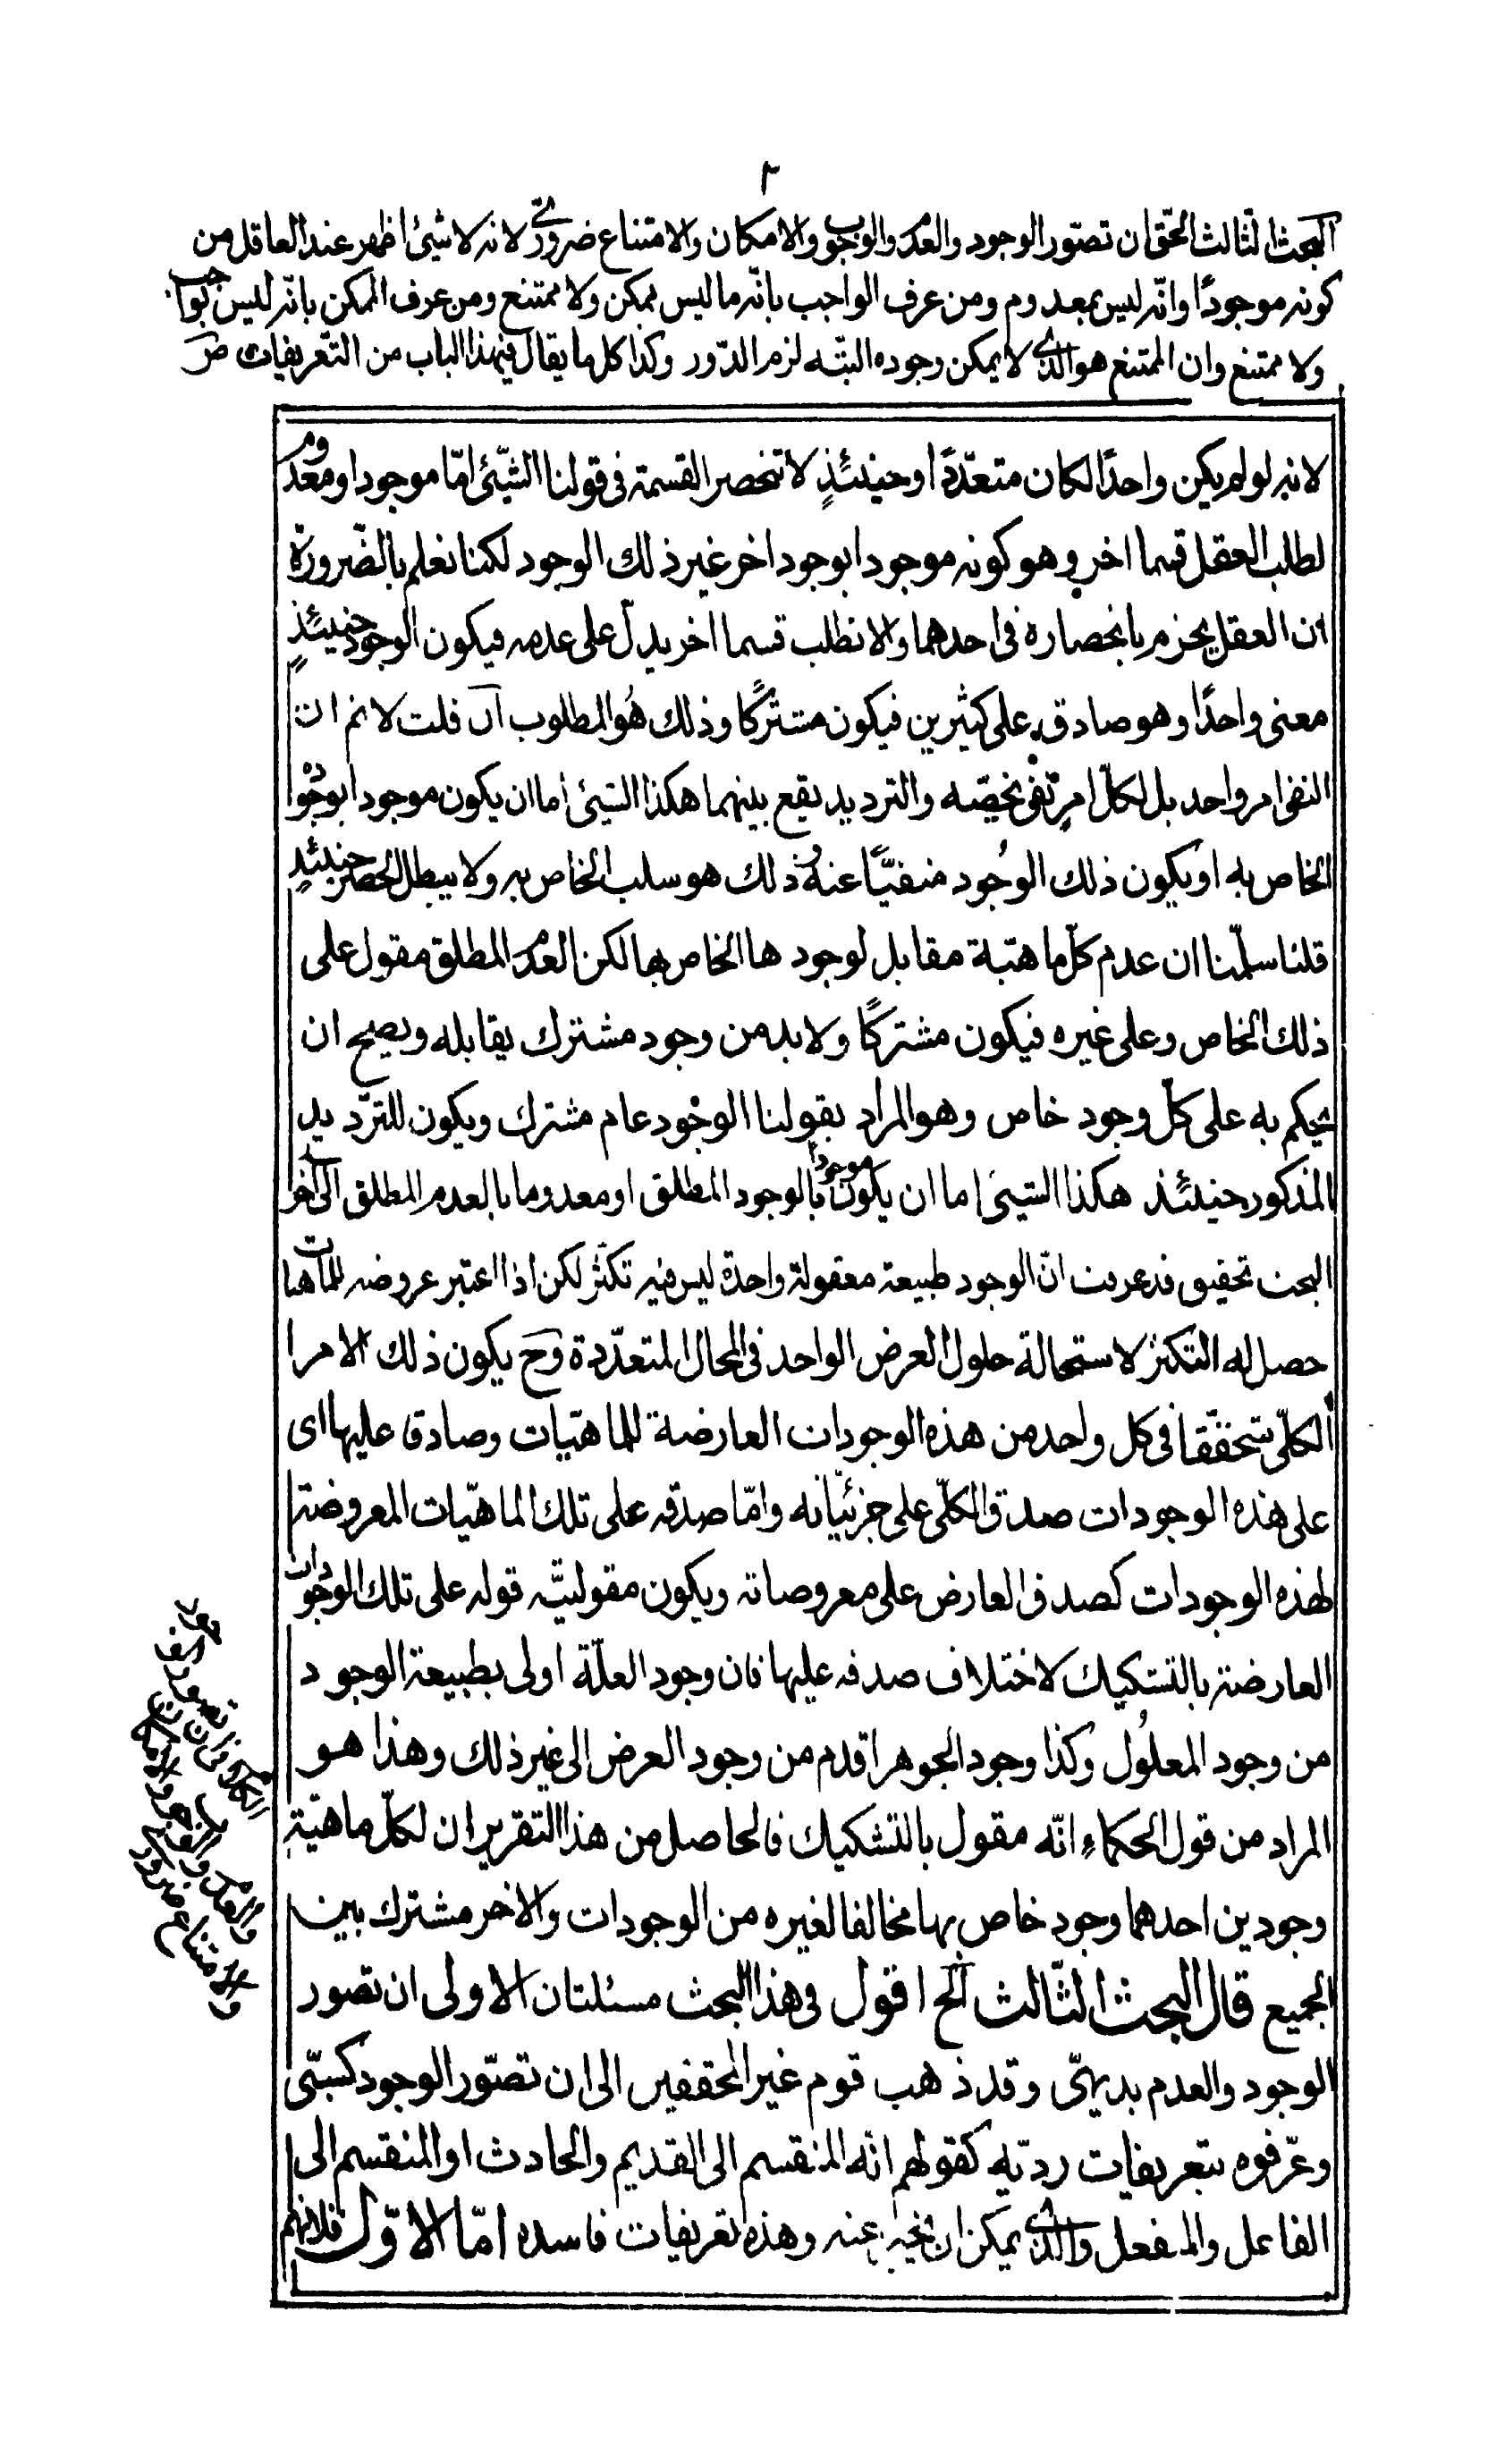 ٢
البحث الثالث الحق ان تصوّر الوجود والعدم والوجوب والامكان والامتناع ضرورىّ لانه لا شئ اظهر عند العاقل من
كونه موجودًا وانّه ليس بمعدوم ومن عرف الواجب بانّه ما ليس بممكن ولا ممتنع ومن عرف الممكن بانّه ليس بواجب
ولا ممتنع وان الممتنع هو الذى لا يمكن وجوده البتّه لزم الدّور وكذا كل ما يقال فى هذا الباب من التّعريفات
لانه لو لم يكن واحدًا لكان متعدّدًا وحينئذٍ لا تنحصر القسمة فى قولنا الشّيئ امّا موجود او معدوم
لطلب العقل قسما اخر وهو كونه موجودا بوجود اخر غير ذلك الوجود لكنا نعلم بالضّرورة
ان العقل يجزم بانحصاره فى احدهما والا نطلب قسما اخر يدلّ على عدمه فيكون الوجود حينئذٍ
معنى واحدًا وهو صادق على كثيرين فيكون مشتركًا وذلك هُو المطلوب ان قلت لا نم ان
النفى امر واحد بل لكلّ امرٍ نفى يخصّه والترديد يقع بينهما هكذا الشيئ اما ان يكون موجودا بوجُوده
الخاص به او يكون ذلك الوجُود منفيّا عنه وذلك هو سلب الخاص به ولا يبطل الحصر حينئذٍ
قلنا سلّمنا ان عدم كلّ ماهيّة مقابل لوجودها الخاص بها لكن العدم المطلق مقول على
ذلك الخاص وعلى غيره فيكون مشتركًا ولا بد من وجود مشترك يقابله ويصح ان
يحكم به على كلّ وجود خاص وهو المراد بقولنا الوجُود عام مشترك ويكون للترّديد
المذكور حينئذ هكذا الشيئ اما ان يكون موجوداً بالوجود المطلق او معدوما بالعدم المطلق الى آخر
البحث تحقيق قد عرفت انّ الوجود طبيعة معقولة واحدة ليس فيه تكثّر لكن اذا اعتبر عروضه للماهيات
حصل له التكثر لاستحالة حلول العرض الواحد فى المحال المتعدّدة وح يكون ذلك الامرا
الكلّى متحققا فى كل واحد من هذه الوجودات العارضة للماهيّات وصادق عليها اى
على هذه الوجودات صدق الكلّى على جزئيّاته وامّا صدقه على تلك الماهيّات المعروضة
لهذه الوجودات كصدق العارض على معروضاته ويكون مقوليّه قوله على تلك الوجودات
العارضة بالتشكيك لاختلاف صدقه عليها فان وجود العلّة اولى بطبيعة الوجود
من وجود المعلُول وكذا وجود الجوهر اقدم من وجود العرض الى غير ذلك وهذا هو
المراد من قول الحكماء انّه مقول بالتشكيك فالحاصل من هذا التقرير ان لكلّ ماهيّة
وجودين احدهما وجود خاص بها مخالفا لغيره من الوجودات والاخر مشترك بين
الجميع قال البحث الثّالث الخ اقول فى هذا البحث مسئلتان الاولى ان تصور
الوجود والعدم بديهىّ وقد ذهب قوم غير المحققين الى ان تصوّر الوجود كسبىّ
وعرّفوه بتعريفات رديّه كقولهم انّه المنقسم الى القديم والحادث او المنقسم الى
الفاعل والمنفعل والذى يمكن ان يخبر عنه وهذه تعريفات فاسده امّا الاوّل فلانهم
والعدم والوجوب والامكان
والامتناع ضرورى